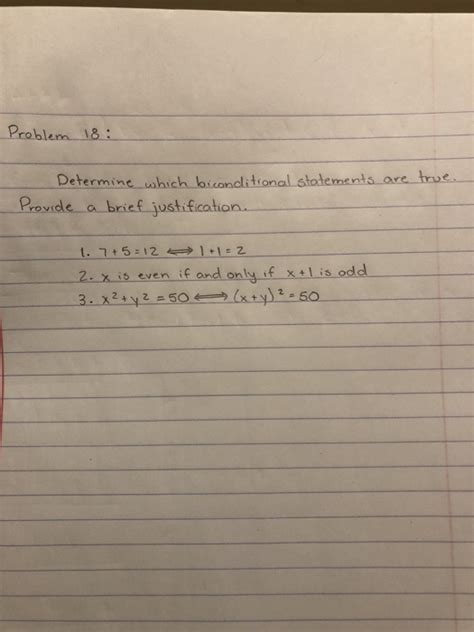 Problem 18:
Determine which biconditional statements are true.
Provide a brief justification.
1. 7+5=12 ⟺ 1+1=2
2. x is even if and only if x+1 is odd
3. x²+y²=50 ⟺ (x+y)²=50